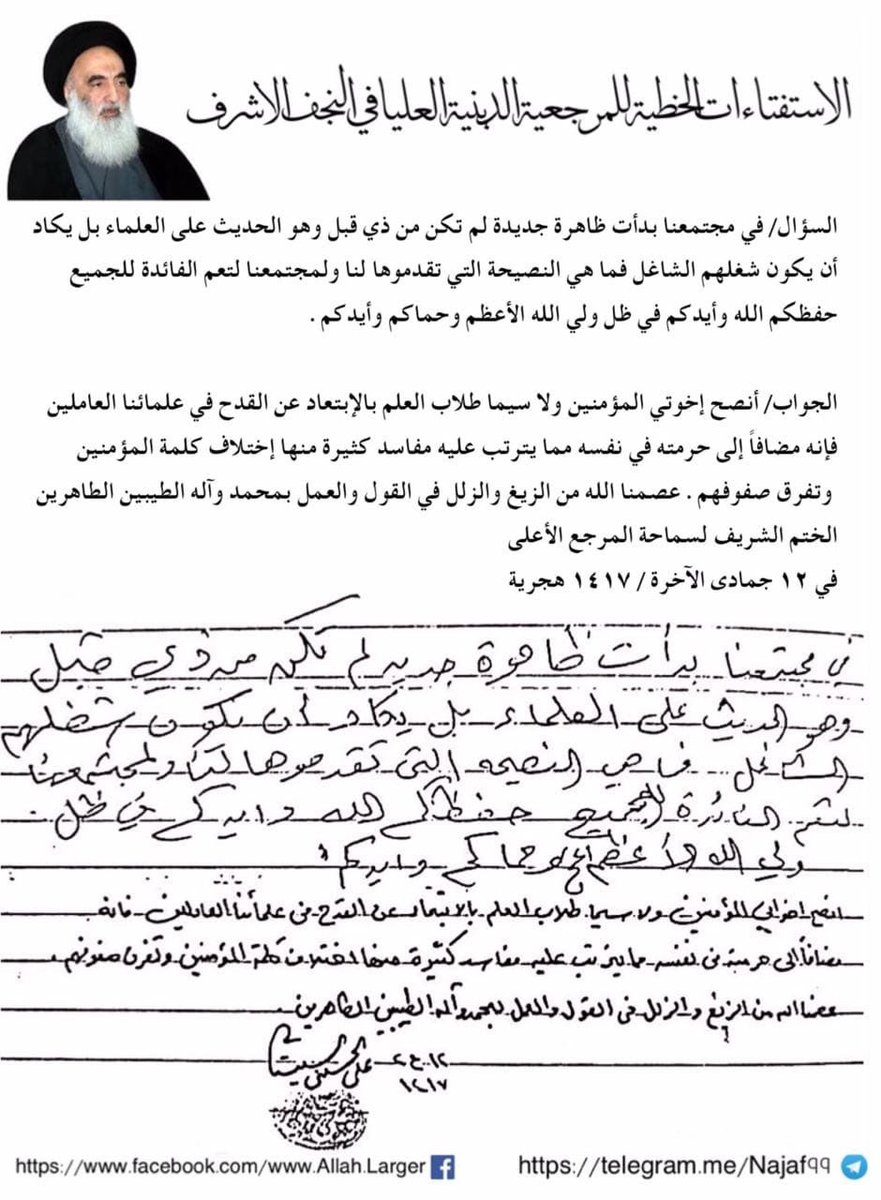 الاستفتاءات الخطية للمرجعية الدينية العليا في النجف الاشرف
السؤال/ في مجتمعنا بدأت ظاهرة جديدة لم تكن من ذي قبل وهو الحديث على العلماء بل يكاد
أن يكون شغلهم الشاغل فما هي النصيحة التي تقدموها لنا ولمجتمعنا لتعم الفائدة للجميع
حفظكم الله وأيدكم في ظل ولي الله الأعظم وحماكم وأيدكم .
الجواب/ أنصح إخوتي المؤمنين ولا سيما طلاب العلم بالإبتعاد عن القدح في علمائنا العاملين
فإنه مضافاً إلى حرمته في نفسه مما يترتب عليه مفاسد كثيرة منها إختلاف كلمة المؤمنين
وتفرق صفوفهم . عصمنا الله من الزيغ والزلل في القول والعمل بمحمد وآله الطيبين الطاهرين
الختم الشريف لسماحة المرجع الأعلى
في ١٢ جمادى الآخرة / ١٤١٧ هجرية
في مجتمعنا بدأت ظاهرة جديده لم تكن من ذي قبل
وهو الحديث على العلماء بل يكاد أن يكون شغلهم
الشاغل .. فما هي النصيحه التي تقدموها لنا ولمجتمعنا
لتعم الفائدة للجميع حفظكم الله وايدكم في ظل
ولي الله الأعظم وحماكم وايدكم
انصح اخواني المؤمنين ولا سيما طلاب العلم بالابتعاد عن القدح في علمائنا العاملين فانه
مضافاً الى حرمته في نفسه مما يترتب عليه مفاسد كثيرة منها اختلاف كلمة المؤمنين وتفرق صفوفهم
عصمنا الله من الزيغ والزلل في القول والعمل بمحمد وآله الطيبين الطاهرين
١٢ ج ٢
١٤١٧
علي الحسيني السيستاني
https://www.facebook.com/www.Allah.Larger
https://telegram.me/Najaf٩٩